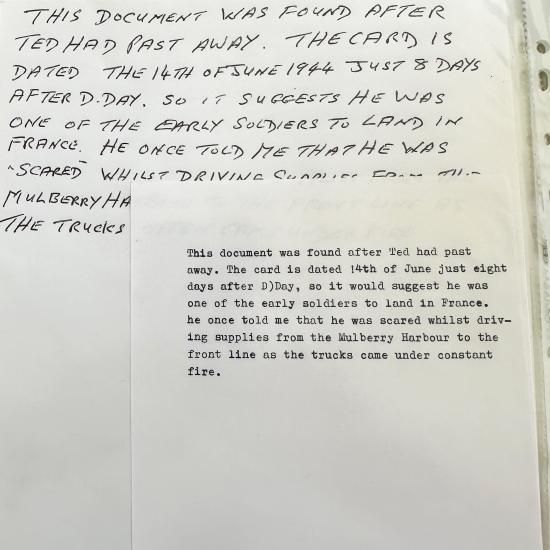 THIS DOCUMENT WAS FOUND AFTER
TED HAD PAST AWAY. THE CARD IS
DATED THE 14TH OF JUNE 1944 JUST 8 DAYS
AFTER D.DAY. SO IT SUGGESTS HE WAS
ONE OF THE EARLY SOLDIERS TO LAND IN
FRANCE. HE ONCE TOLD ME THAT HE WAS
"SCARED" WHILST DRIVING SUPPLIES FROM THE
MULBERRY HA
THE TRUCKS
This document was found after Ted had past
away. The card is dated 14th of June just eight
days after D)Day, so it would suggest he was
one of the early soldiers to land in France.
he once told me that he was scared whilst driv-
ing supplies from the Mulberry Harbour to the
front line as the trucks came under constant
fire.